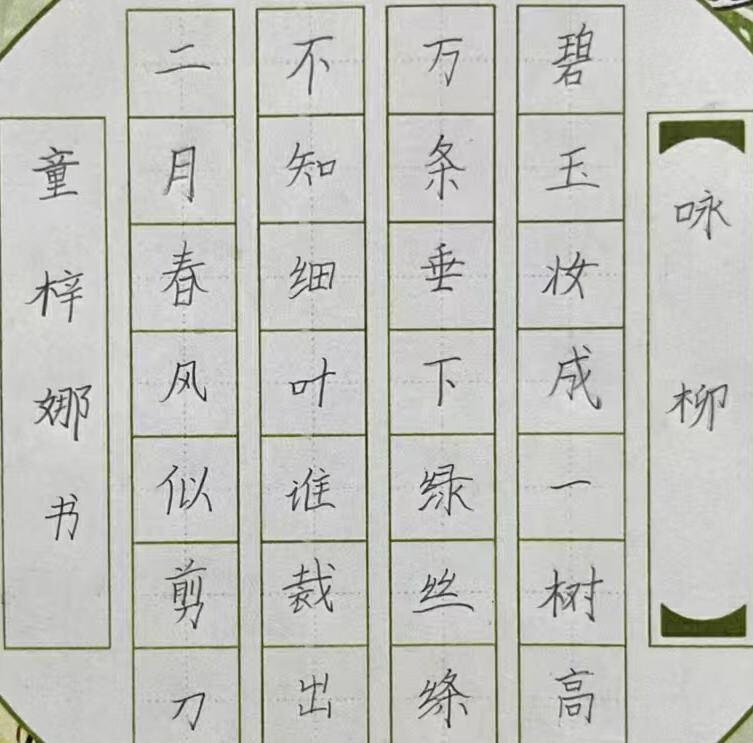 咏柳
碧玉妆成一树高
万条垂下绿丝绦
不知细叶谁裁出
二月春风似剪刀
童梓娜书